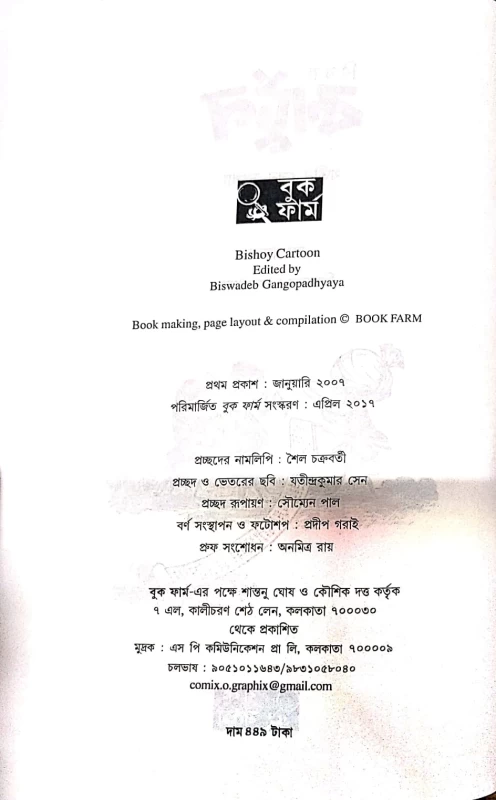 বুক
ফার্ম
Bishoy Cartoon
Edited by
Biswadeb Gangopadhyaya
Book making, page layout & compilation © BOOK FARM
প্রথম প্রকাশ : জানুয়ারি ২০০৭
পরিমার্জিত বুক ফার্ম সংস্করণ : এপ্রিল ২০১৭
প্রচ্ছদের নামলিপি : শৈল চক্রবর্তী
প্রচ্ছদ ও ভেতরের ছবি : যতীন্দ্রকুমার সেন
প্রচ্ছদ রূপায়ণ : সৌম্যেন পাল
বর্ণ সংস্থাপন ও ফটোশপ : প্রদীপ গরাই
প্রুফ সংশোধন : অনমিত্র রায়
বুক ফার্ম-এর পক্ষে শান্তনু ঘোষ ও কৌশিক দত্ত কর্তৃক
৭ এল, কালীচরণ শেঠ লেন, কলকাতা ৭০০০৩০
থেকে প্রকাশিত
মুদ্রক : এস পি কমিউনিকেশন প্রা লি, কলকাতা ৭০০০০৯
চলভাষ : ৯০৫১০১১৬৪৩/৯৮৩১০৫৮০৪০
comix.o.graphix@gmail.com
দাম ৪৪৯ টাকা